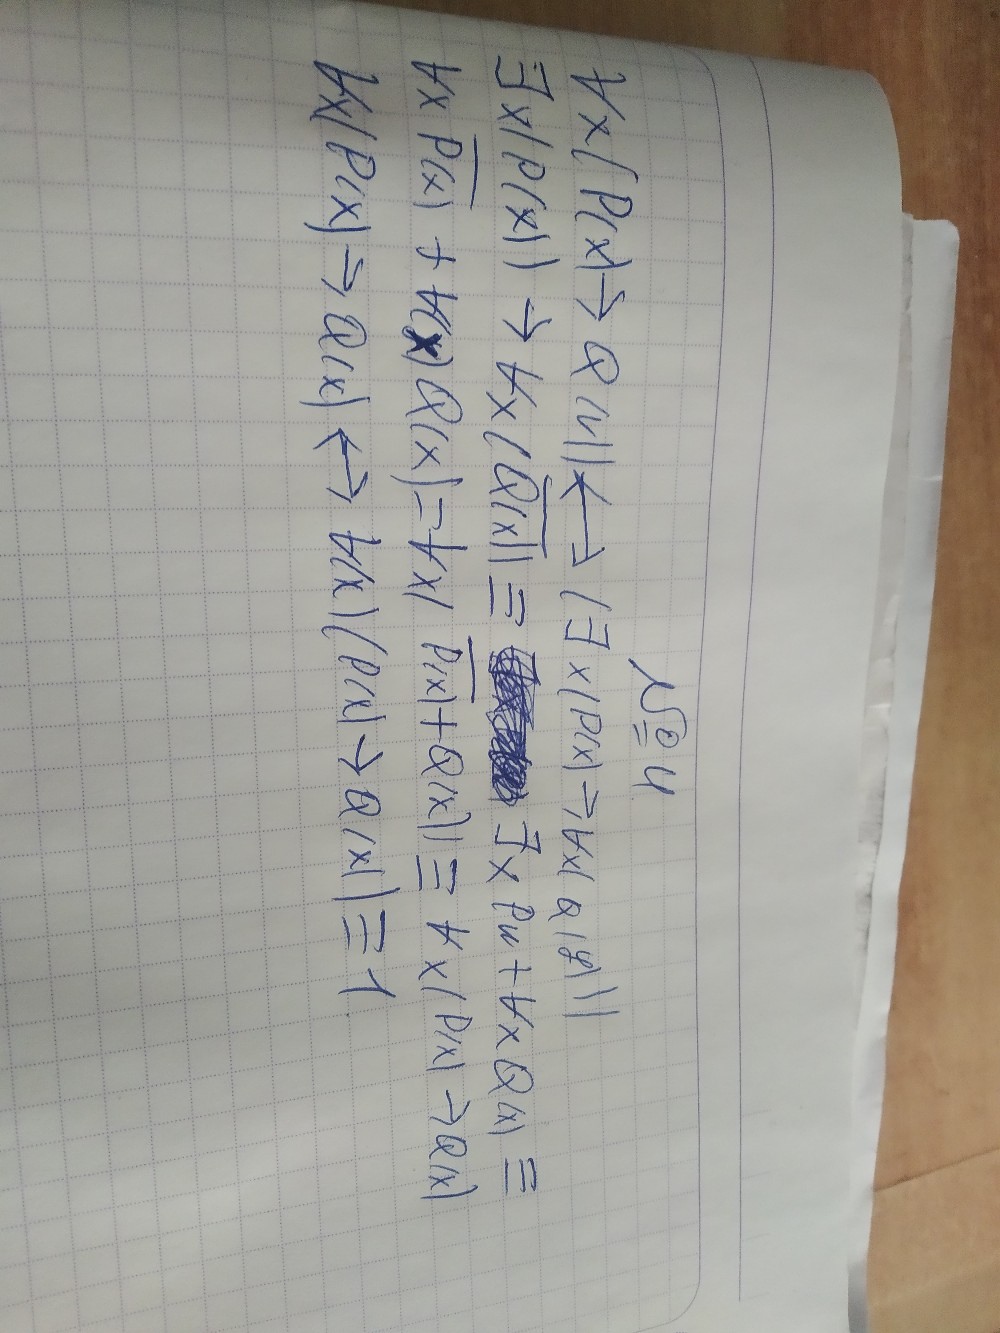 №4
∀x(P(x)→Q(x))⟷(∃x(P(x)→∀x(Q(y)))
∃x(P(x))→∀x(Q̅(̅x̅)̅)≡ ∃x P(x)+∀x Q(x)≡
∀x P̅(̅x̅)̅+∀(x)Q(x)=∀x(P̅(̅x̅)̅+Q(x))≡∀x(P(x)→Q(x)
∀x(P(x)→Q(x)⟷∀(x)(P(x)→Q(x))≡1